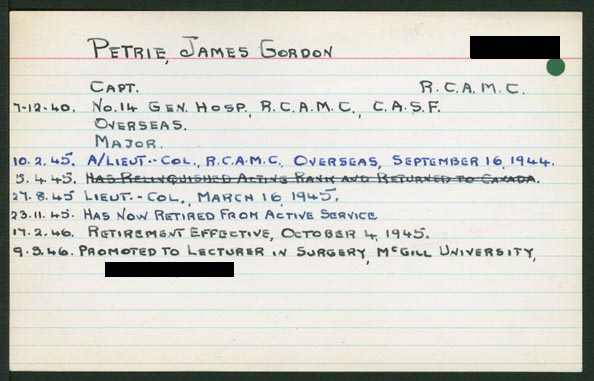 PETRIE, JAMES GORDON
CAPT. R.C.A.M.C.
7-12-40. NO.14 GEN. HOSP., R.C.A.M.C., C.A.S.F.
OVERSEAS.
MAJOR.
10.2.45. A/LIEUT.-COL., R.C.A.M.C. OVERSEAS, SEPTEMBER 16, 1944.
5.4.45. HAS RELINQUISHED ACTING RANK AND RETURNED TO CANADA.
27.8.45 LIEUT.-COL., MARCH 16, 1945.
23.11.45. HAS NOW RETIRED FROM ACTIVE SERVICE
17.2.46. RETIREMENT EFFECTIVE, OCTOBER 4, 1945.
9.3.46. PROMOTED TO LECTURER IN SURGERY, MCGILL UNIVERSITY,